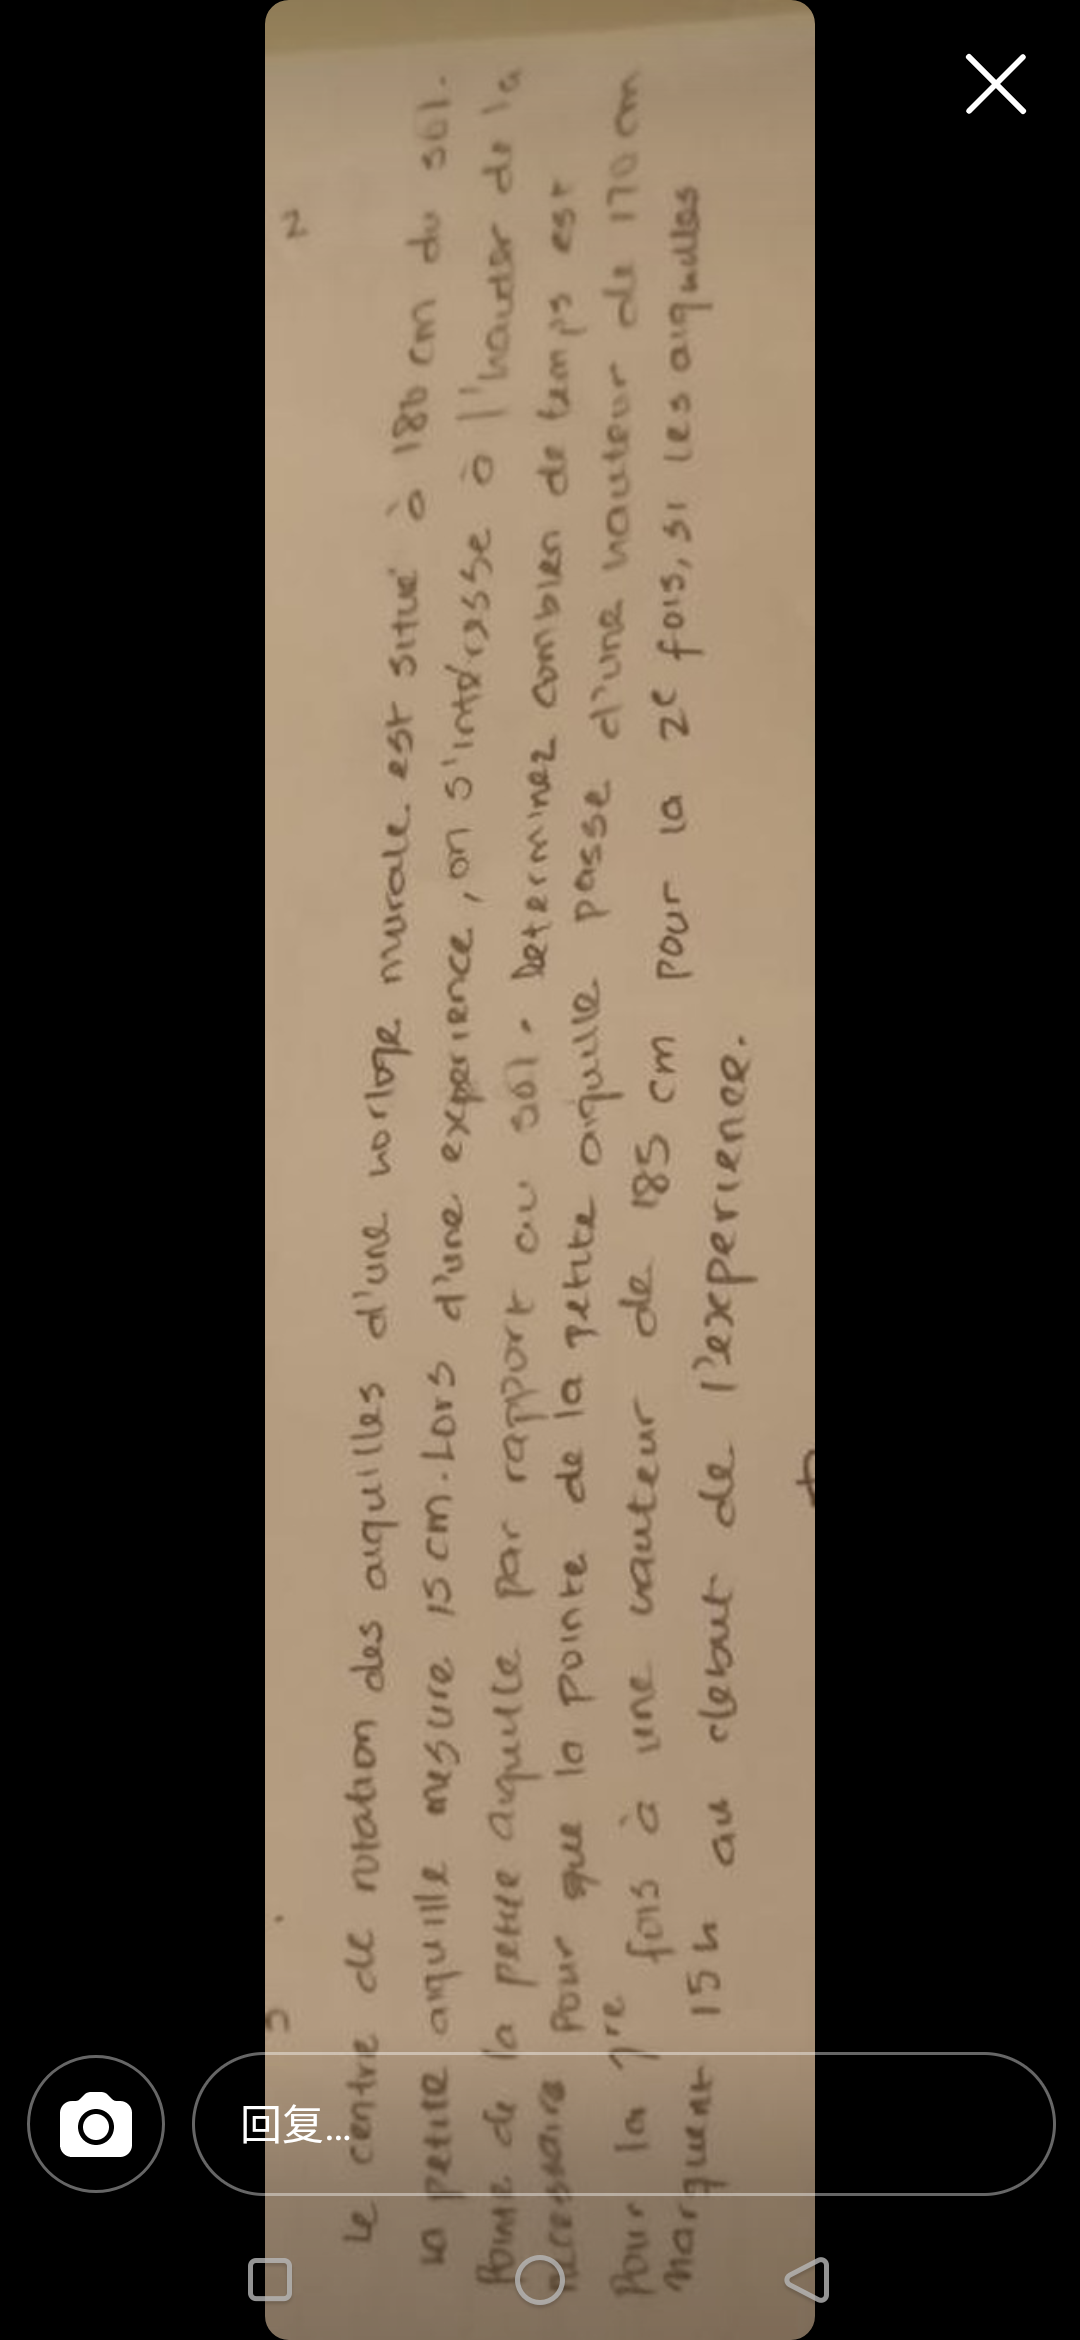 Le centre de rotation des aiguilles d'une horloge murale est situé à 180 cm du sol.
la petite aiguille mesure 15 cm. Lors d'une experience, on s'intéresse à l'hauteur de la
Pointe de la petite aiguille par rapport au sol. Determinez combien de temps est
necessaire pour que la pointe de la petite aiguille passe d'une hauteur de 170 cm
Pour la 1re fois à une hauteur de 185 cm pour la 2e fois, si les aiguilles
marquent 15h au debut de l'experience.
回复...